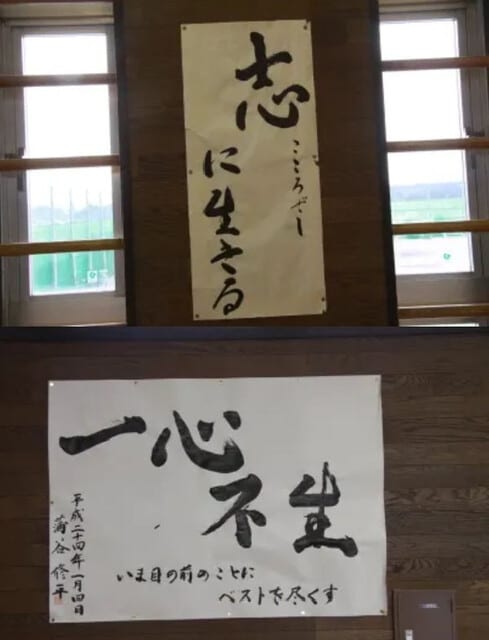 志
こころざし
に生きる
一心
不生
いま目の前のことに
ベストを尽くす
平成二十四年一月四日
蒲谷修平